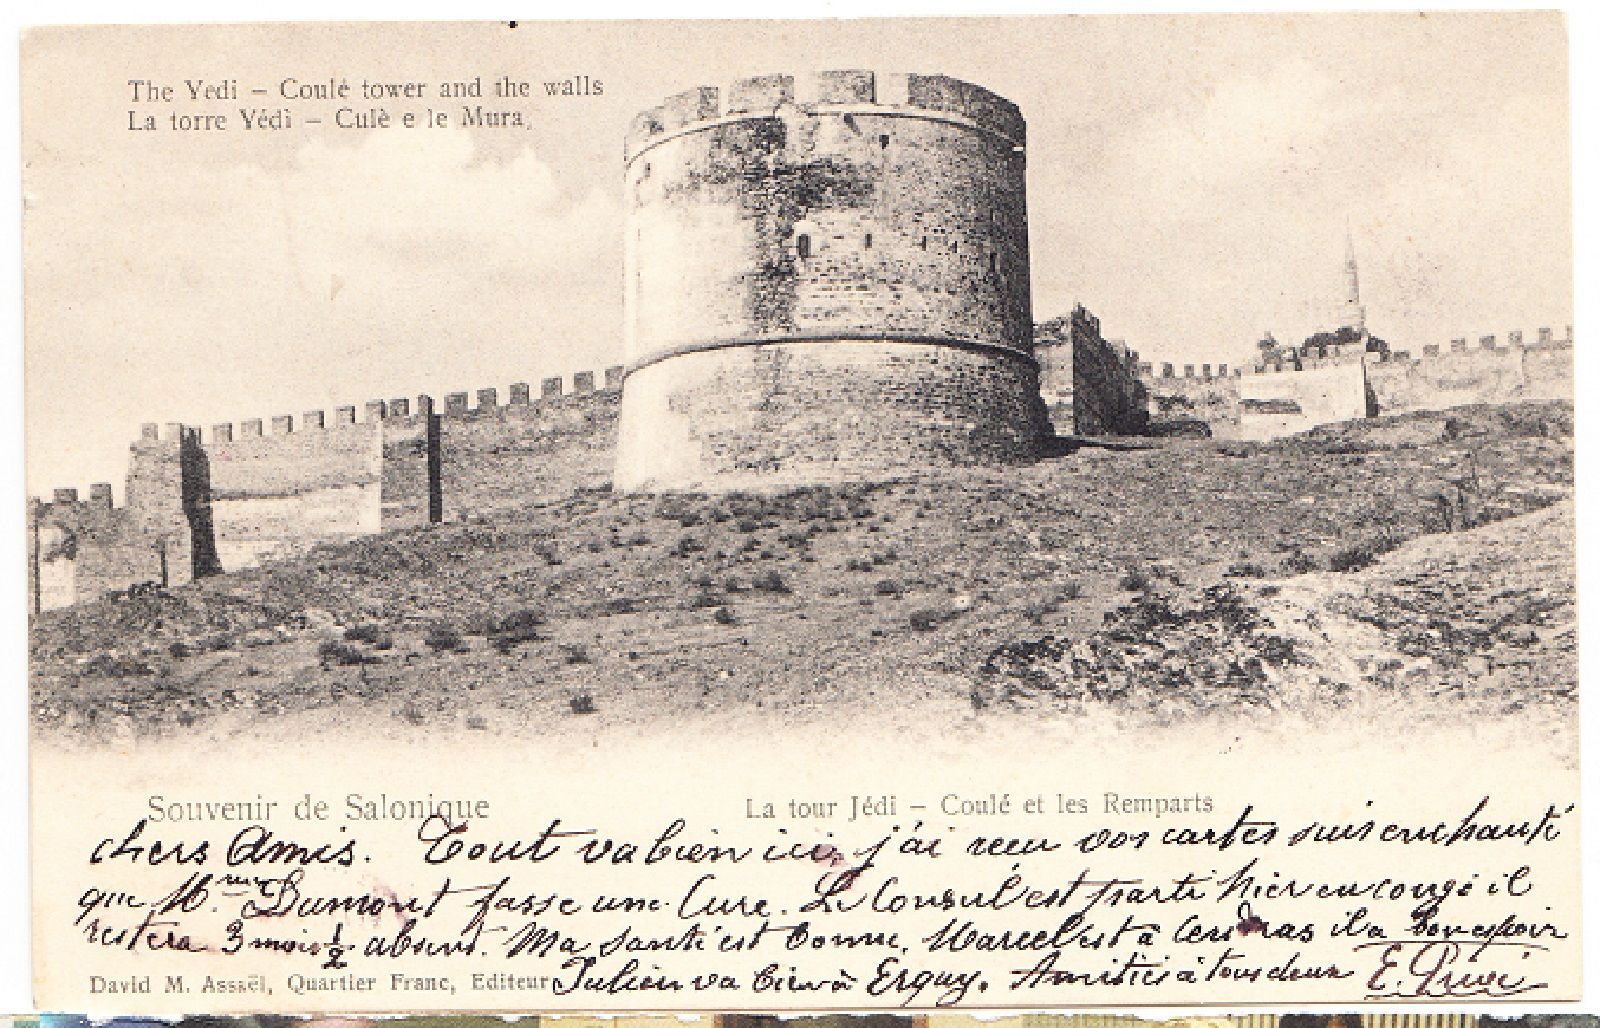 The Yedi – Coulé tower and the walls
La torre Yédì – Culè e le Mura.
Souvenir de Salonique
La tour Jédi – Coulé et les Remparts
chers Amis. Tout va bien ici, j'ai reçu vos cartes suis enchanté
que Mme Dumont fasse une Cure. Le Consul est parti hier en congé il
restera 3 mois 1/2 absent. Ma santé est bonne. Marcel est à il a bon espoir
David M. Assaël, Quartier Franc, Editeur
Julien va bien à Erquy. Amitiés à tous deux E.